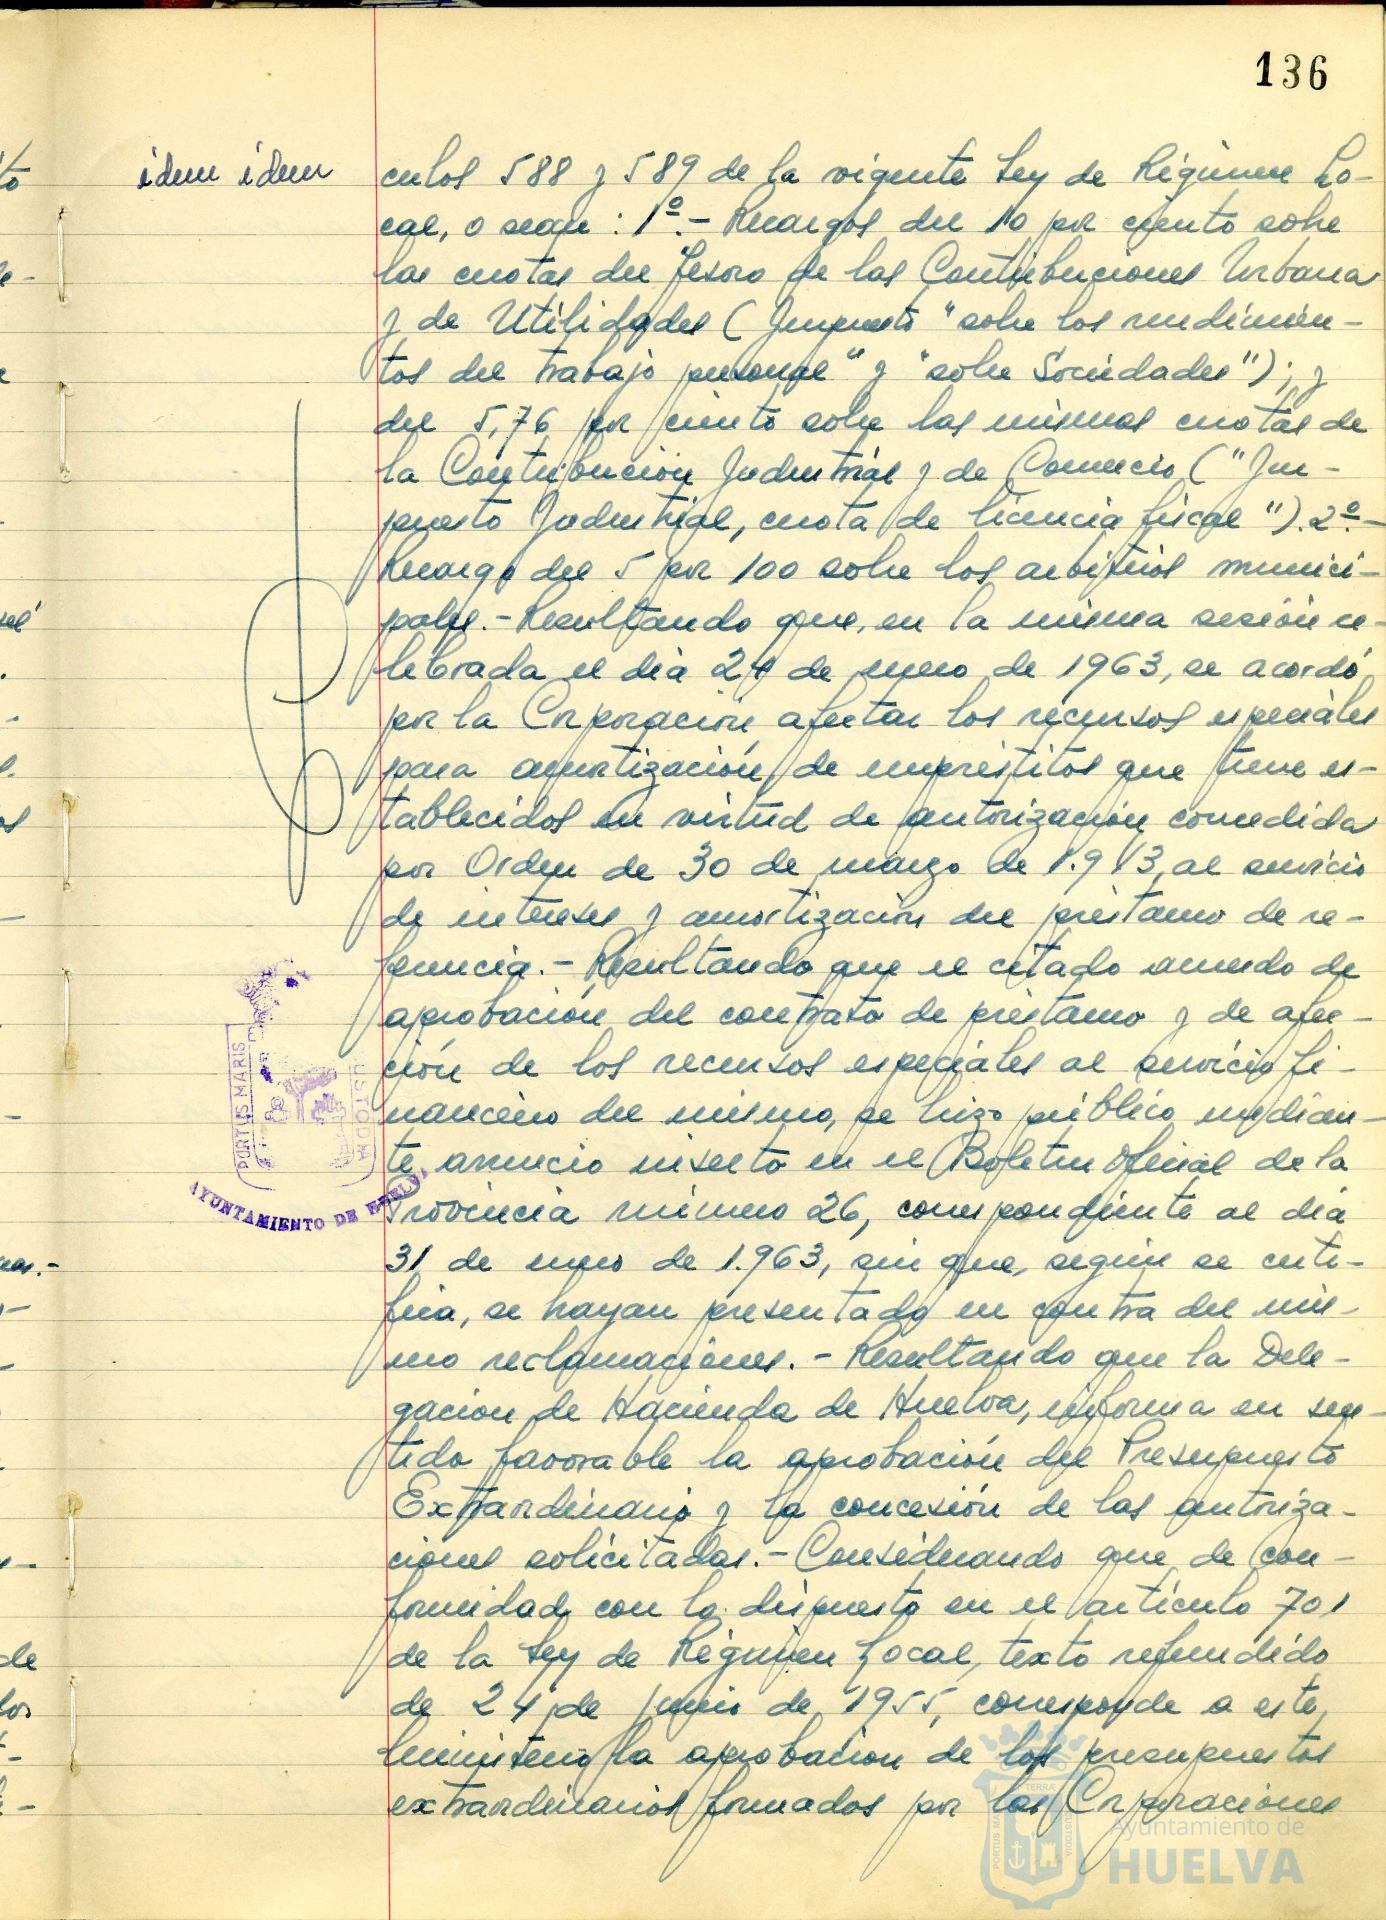 136
idem idem
culos 588 y 589 de la vigente Ley de Régimen Lo-
cal, o sean: 1º.- Recargos del 10 por ciento sobre
las cuotas del Tesoro de las Contribuciones Urbana
y de Utilidades (Impuesto "sobre los rendimien-
tos del trabajo personal" y "sobre Sociedades"); y
del 5,76 por ciento sobre las mismas cuotas de
la Contribución Industrial y de Comercio ("Im-
puesto Industrial, cuota de licencia fiscal"). 2º.-
Recargo del 5 por 100 sobre los arbitrios munici-
pales.- Resultando que, en la misma sesión ce-
lebrada el día 24 de enero de 1963, se acordó
por la Corporación afectar los recursos especiales
para amortización de empréstitos que tiene es-
tablecidos en virtud de autorización concedida
por Orden de 30 de marzo de al servicio
de intereses y amortización del préstamo de re-
ferencia.- Resultando que el citado acuerdo de
aprobación del contrato de préstamo y de afec-
ción de los recursos especiales al servicio fi-
nanciero del mismo, se hizo público median-
te anuncio inserto en el Boletín Oficial de la
Provincia número 26, correspondiente al día
31 de enero de 1.963, sin que, según se certi-
fica, se hayan presentado en contra del mis-
mo reclamaciones.- Resultando que la Dele-
gación de Hacienda de Huelva, informa en sen-
tido favorable la aprobación del Presupuesto
Extraordinario y la concesión de las autoriza-
ciones solicitadas.- Considerando que de con-
formidad con lo dispuesto en el artículo 701
de la Ley de Régimen Local, texto refundido
de 24 de junio de 1955, corresponde a este
Ministerio la aprobación de los presupuestos
extraordinarios formados por las Corporaciones
PORTUS MARIS
CUSTODIA
AYUNTAMIENTO DE HUELVA
Ayuntamiento de
HUELVA